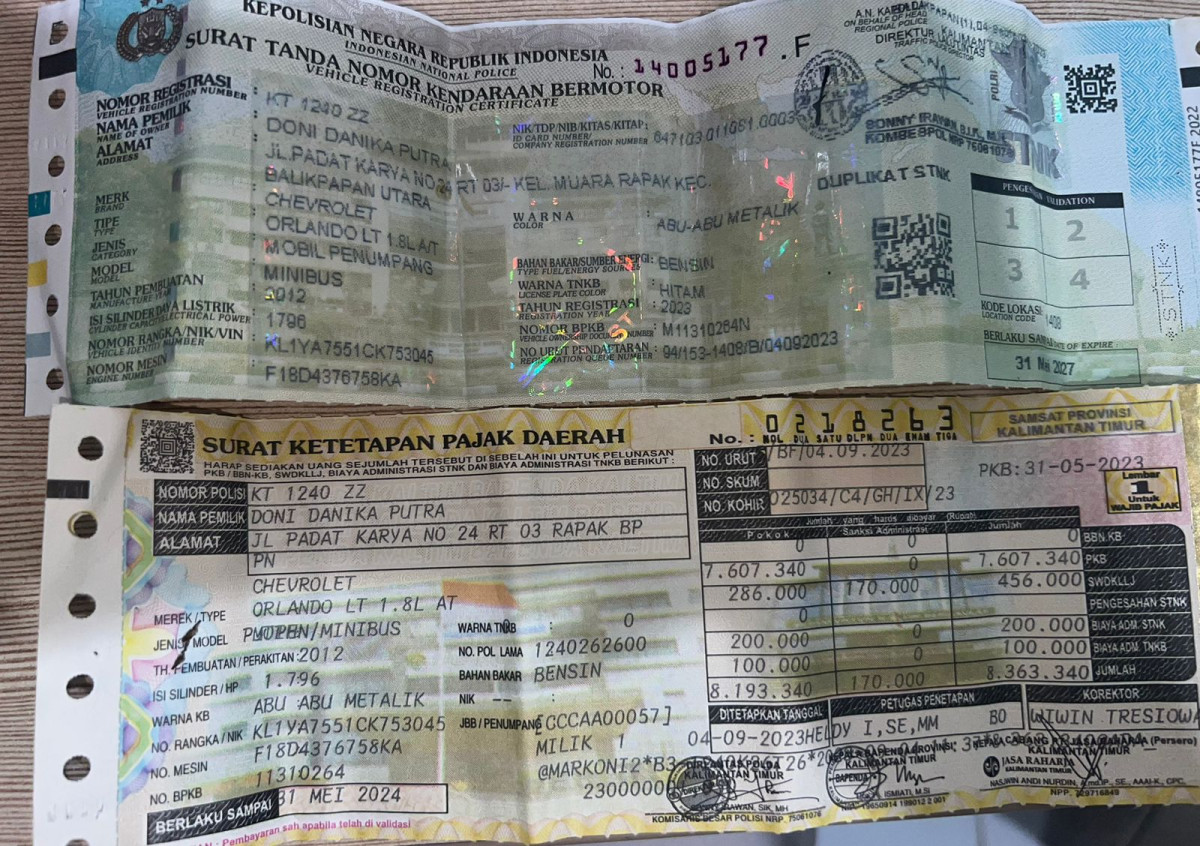 KEPOLISIAN NEGARA REPUBLIK INDONESIA
INDONESIAN NATIONAL POLICE
SURAT TANDA NOMOR KENDARAAN BERMOTOR
VEHICLE REGISTRATION CERTIFICATE
No. : 14005177 .F
A.N.
ON BEHALF OF HEAD
REGIONAL POLICE
DIREKTUR
POLRI
NOMOR REGISTRASI KT 1240 ZZ
VEHICLE REGISTRATION NUMBER
NAMA PEMILIK : DONI DANIKA PUTRA
NAME OF OWNER
NIK/TDP/NIB/KITAS/KITAP :
ID CARD NUMBER/
COMPANY REGISTRATION NUMBER
ALAMAT JL.PADAT KARYA NO 24 RT 03/- KEL. MUARA RAPAK KEC.
ADDRESS
BALIKPAPAN UTARA
SONNY IRAWAN, S.I.K., M.H.
KOMBESPOL NRP 75061076
DUPLIKAT STNK
STNK
MERK : CHEVROLET
BRAND
WARNA : ABU-ABU METALIK
COLOR
TIPE : ORLANDO LT 1.8L A/T
TYPE
JENIS : MOBIL PENUMPANG
CATEGORY
BAHAN BAKAR/SUMBER ENERGI : BENSIN
TYPE FUEL/ENERGY SOURCES
MODEL : MINIBUS
MODEL
WARNA TNKB : HITAM
LICENSE PLATE COLOR
TAHUN PEMBUATAN : 2012
MANUFACTURE YEAR
TAHUN REGISTRASI : 2023
REGISTRATION YEAR
ISI SILINDER/DAYA LISTRIK : 1796
CYLINDER CAPACITY/ELECTRICAL POWER
NOMOR BPKB : M11310264N
NOMOR RANGKA/NIK/VIN : KL1YA7551CK753045
VEHICLE IDENTITY NUMBER
NO URUT PENDAFTARAN : 94/153-1408/B/04092023
REGISTRATION QUEUE NUMBER
NOMOR MESIN : F18D4376758KA
ENGINE NUMBER
VALIDATION
1 2
3 4
KODE LOKASI : 1408
LOCATION CODE
BERLAKU
DATE OF EXPIRE
31 2027
STNK
SURAT KETETAPAN PAJAK DAERAH
HARAP SEDIAKAN UANG SEJUMLAH TERSEBUT DI SEBELAH INI UNTUK PELUNASAN
PKB / BBN-KB, SWDKLLJ, BIAYA ADMINISTRASI STNK DAN BIAYA ADMINISTRASI TNKB BERIKUT :
No. : 0218263
NOL DUA SATU DLPN DUA ENAM TIGA
SAMSAT PROVINSI
KALIMANTAN TIMUR
NO. URUT /BF/04.09.2023
NO. SKUM
NO. KOHIR 025034/C4/GH/IX/23
PKB:31-05-2023
Lembar
1
Untuk
WAJIB PAJAK
NOMOR POLISI KT 1240 ZZ
NAMA PEMILIK DONI DANIKA PUTRA
ALAMAT JL PADAT KARYA NO 24 RT 03 RAPAK BP
PN
Jumlah yang harus dibayar (Rupiah)
Pokok Sanksi Administrasi Jumlah
0 0 0 BBN.KB
7.607.340 0 7.607.340 PKB
286.000 170.000 456.000 SWDKLLJ
PENGESAHAN STNK
200.000 0 200.000 BIAYA ADM. STNK
100.000 0 100.000 BIAYA ADM. TNKB
8.193.340 170.000 8.363.340 JUMLAH
CHEVROLET
MEREK / TYPE ORLANDO LT 1.8L AT
JENIS MODEL /MINIBUS
WARNA TNKB : 0
TH. PEMBUATAN / PERAKITAN :2012
NO. POL LAMA 1240262600
ISI SILINDER / HP 1.796
BAHAN BAKAR BENSIN
WARNA KB ABU ABU METALIK
NIK --
NO. RANGKA / NIK KL1YA7551CK753045
JBB / PENUMPANG [CCCAA00057]
NO. MESIN F18D4376758KA
MILIK 1
NO. BPKB 11310264
@MARKONI2*B3
BERLAKU SAMPAI 31 MEI 2024
DITETAPKAN TANGGAL PETUGAS PENETAPAN KOREKTOR
04-09-2023 HELDY I,SE,MM BO WIWIN
KALIMANTAN TIMUR
KOMISARIS BESAR POLISI NRP. 75061076
BAPENDA
KALIMANTAN TIMUR
ISMIATI, M.SI
JASA RAHARJA
KALIMANTAN TIMUR
Pembayaran sah apabila telah di validasi